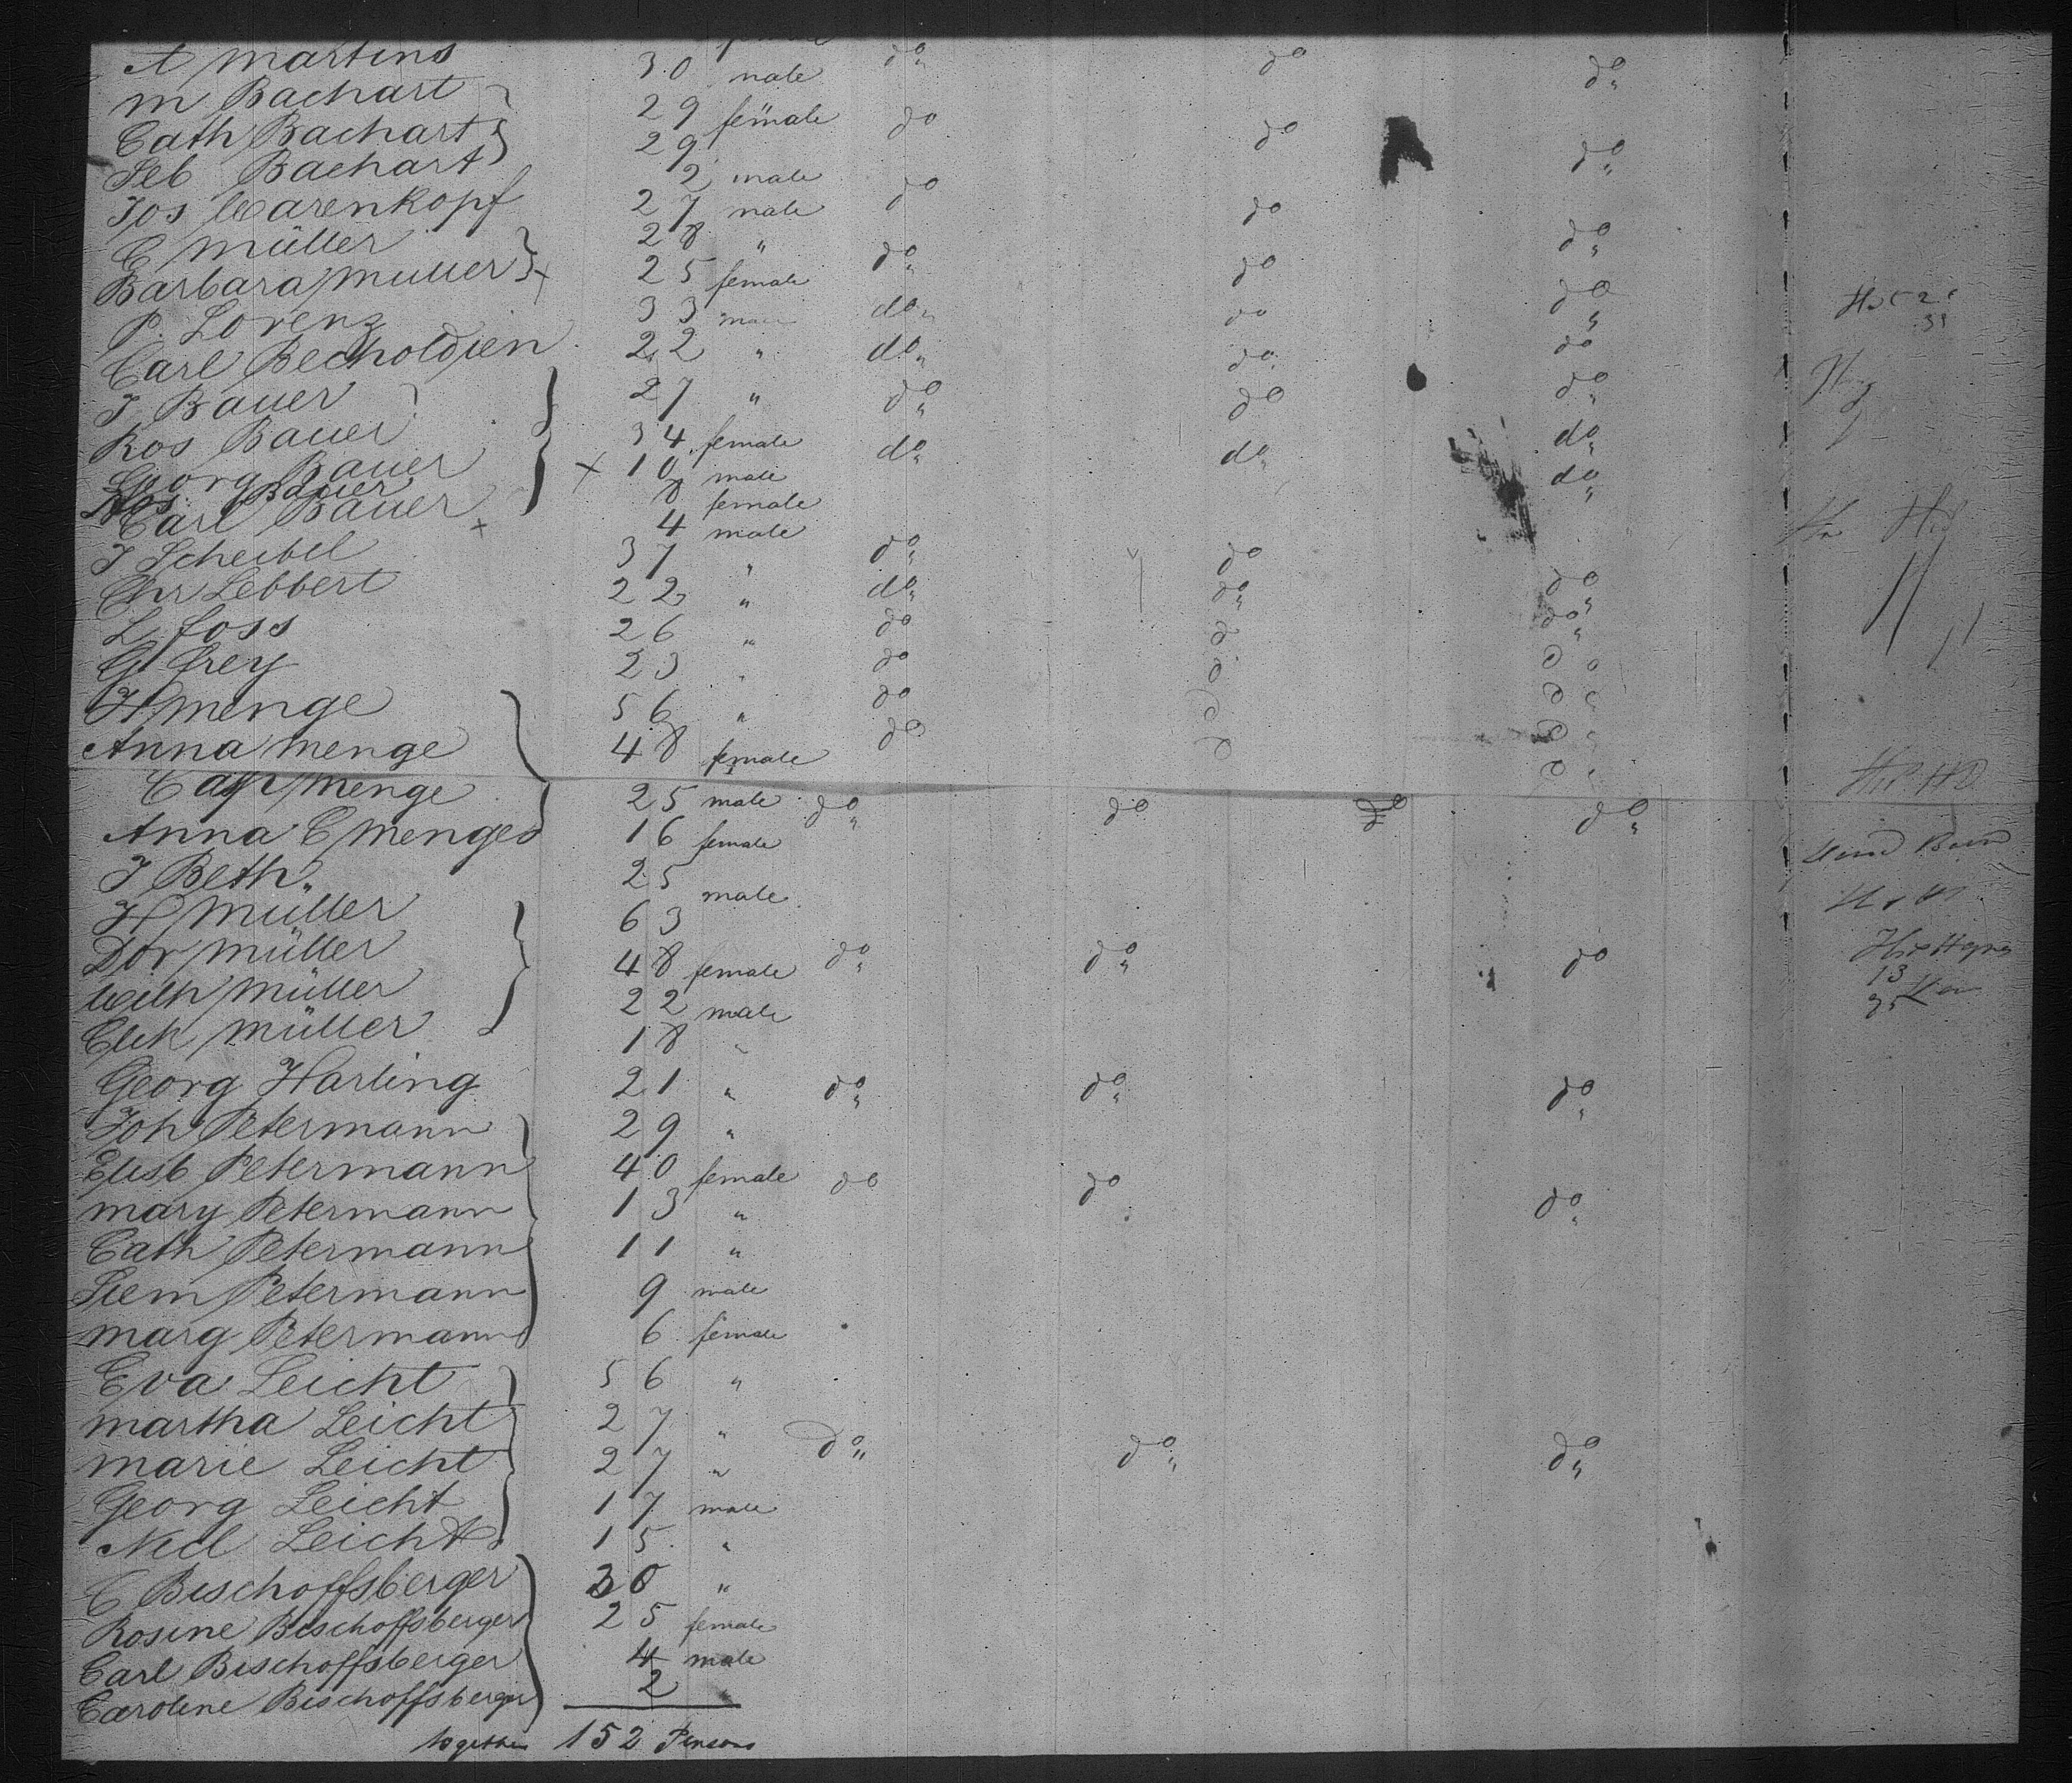 A Martins 30 male do„ do do„
M Bachart 29 female do do do„
Cath Bachart 29
Seb Bachart 2 male
Jos Warenkopf 27 male do do do„
C Müller 28 „ do„ do do„
Barbara Müller 25 female
P. Lorenz 33 do„ do do
Carl Bechtoldien 22 „ do„ do do„
J Bauer 27 „ do„ do do„
Ros Bauer 34 female do„ do„ do„
Georg Bauer 10 male
Ros Bauer 8 female
Carl Bauer 4 male
J Scheibel 37 „ do„ do„ do„
Chr Lebbert 22 „ do„ do„ do„
L foss 26 „ do
G frey 23 „ do
H Menge 56 „ do
Anna Menge 48 female do
Casp Menge 25 male do„ do do do„
Anna E Menges 16 female
J Beth„ 25 male
H Müller 63
Dor Müller 48 female do„ do„ do
Wilh Müller 22 male
Müller 18 „
Georg Harling 21 „ do„ do„ do„
Joh Petermann 29 „
Elisb Petermann 40 female do do do„
Mary Petermann 13 „
Cath Petermann 11 „
Petermann 9 male
Marg Petermann 6 female
Eva Leicht 56 „
Martha Leicht 27 „ do„ do„ do„
Marie Leicht 27 „
Georg Leicht 17 male
Leicht 15 „
C Bischoffsberger 30 „
Rosine Bischoffsberger 25 female
Carl Bischoffsberger 4 male
Caroline Bischoffsberger 2
together 152 Persons